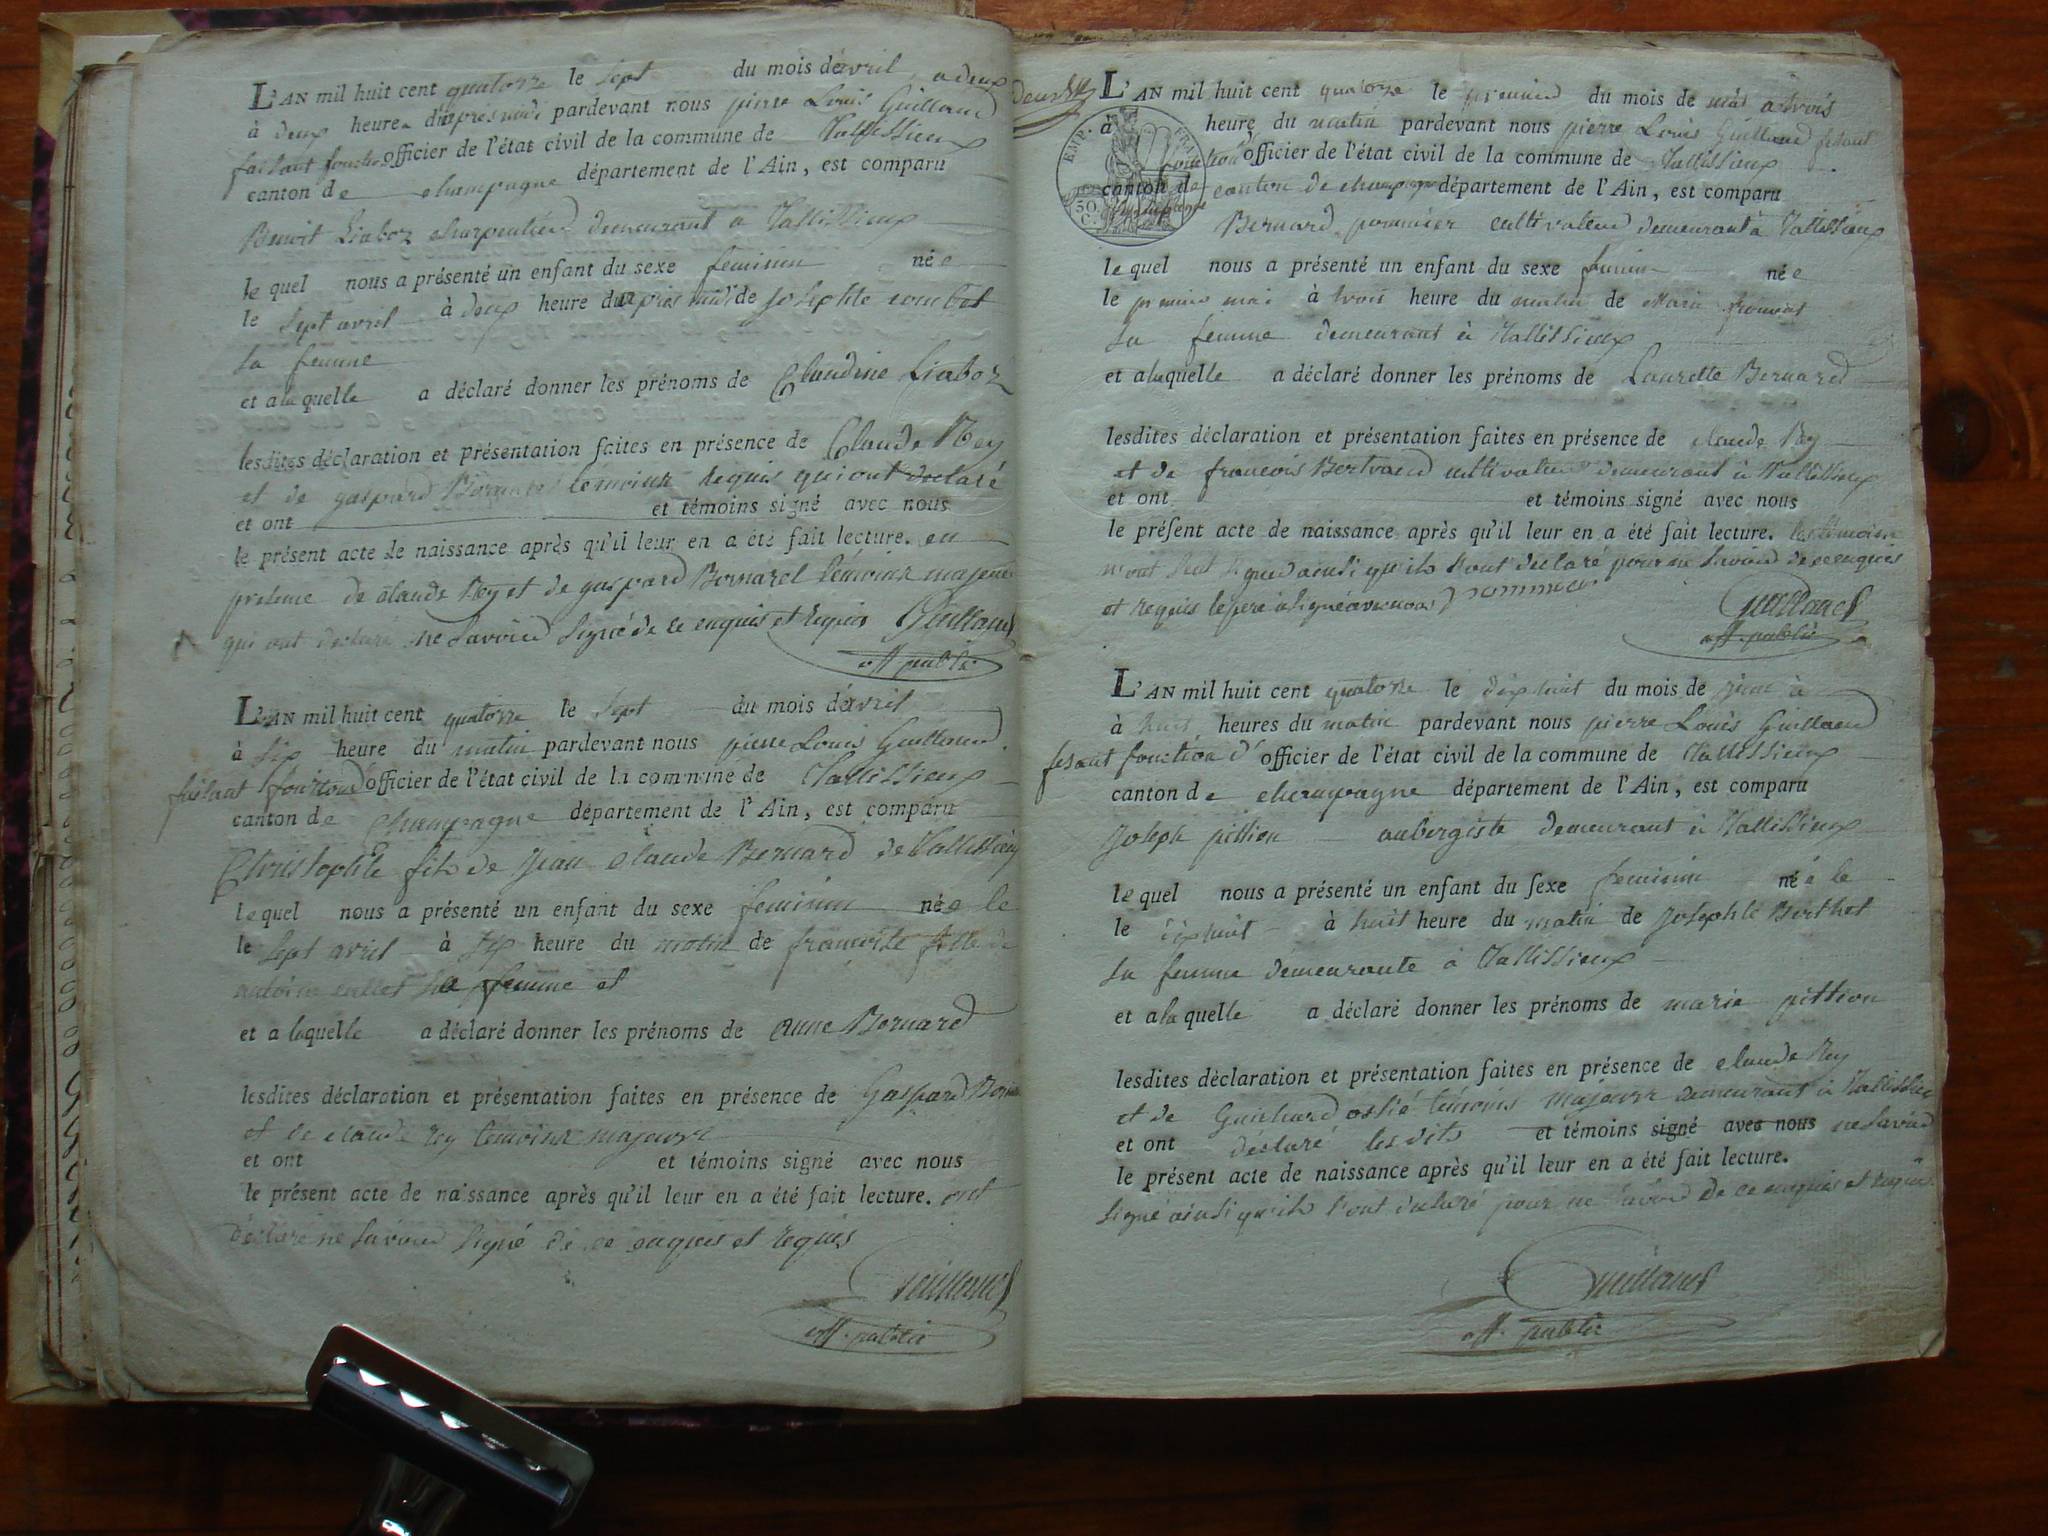 L'AN mil huit cent quatorze le sept du mois d'avril a deux
à deux heure d'après midi pardevant nous pierre Louis Guilland
faisant fonction officier de l'état civil de la commune de Tallissieux
canton de champagne département de l'Ain, est comparu
Benoit Liaboz charpentier demeurant a Tallissieux
le quel nous a présenté un enfant du sexe feminin née
le sept avril à deux heure du après midi de Josephte combet
sa femme
et a laquelle a déclaré donner les prénoms de Claudine Liaboz
lesdites déclaration et présentation faites en présence de Claude Rey
et de gaspard Bornarel témoins requis qui ont declaré
et ont et témoins signé avec nous
le présent acte de naissance après qu'il leur en a été fait lecture. en
presence de claude Rey et de gaspard Bornarel témoins majeurs
qui ont declaré ne savoir signé de ce enquis et requis Guilland
off. public
L'AN mil huit cent quatorze le sept du mois d'avril
à six heure du matin pardevant nous pierre Louis Guilland
faisant fonction d'officier de l'état civil de la commune de Tallissieux
canton de champagne département de l'Ain, est comparu
Christophle fils de Jean claude Bernard de Tallissieux
le quel nous a présenté un enfant du sexe feminin née le
le sept avril à six heure du matin de francoise fille de
antoine sa femme et
et a laquelle a déclaré donner les prénoms de anne Bernard
lesdites déclaration et présentation faites en présence de Gaspard
et de claude rey temoins majeurs
et ont et témoins signé avec nous
le présent acte de naissance après qu'il leur en a été fait lecture. ont
déclaré ne savoir signé de ce enquis et requis
Guilland
off. public
L'AN mil huit cent quatorze le premier du mois de mai a trois
à heure du matin pardevant nous pierre Louis Guilland fesant
fonction d'officier de l'état civil de la commune de Tallissieux
canton de canton de champagne département de l'Ain, est comparu
EMP. FRAN.
50 C.
Bernard pommier cultivateur demeurant à Tallissieux
le quel nous a présenté un enfant du sexe feminin née
le premier mai à trois heure du matin de Marie froment
sa femme demeurant à Tallissieux
et a laquelle a déclaré donner les prénoms de Laurette Bernard
lesdites déclaration et présentation faites en présence de claude Rey
et de françois Bertrand cultivateur demeurant à Tallissieux
et ont et témoins signé avec nous
le présent acte de naissance après qu'il leur en a été fait lecture. les témoins
n'ont signé ainsi qu'ils l'ont declaré pour ne savoir de ce enquis
et requis le pere a signé avec nous pommier
Guilland
off. public
L'AN mil huit cent quatorze le dix huit du mois de juin à
à huit heures du matin pardevant nous pierre Louis Guilland
fesant fonction d'officier de l'état civil de la commune de Tallissieux
canton de champagne département de l'Ain, est comparu
Joseph pittion aubergiste demeurant à Tallissieux
le quel nous a présenté un enfant du sexe feminin née le
le dix huit à huit heure du matin de Josephte Berthet
sa femme demeurante à Tallissieux
et a la quelle a déclaré donner les prénoms de marie pittion
lesdites déclaration et présentation faites en présence de claude Rey
et de Guichard témoins majeurs demeurant à Tallissieux
et ont déclaré lesdits et témoins signé avec nous ne savoir
le présent acte de naissance après qu'il leur en a été fait lecture.
signé ainsi qu'ils l'ont declaré pour ne savoir de ce enquis et requis
Guilland
off. public